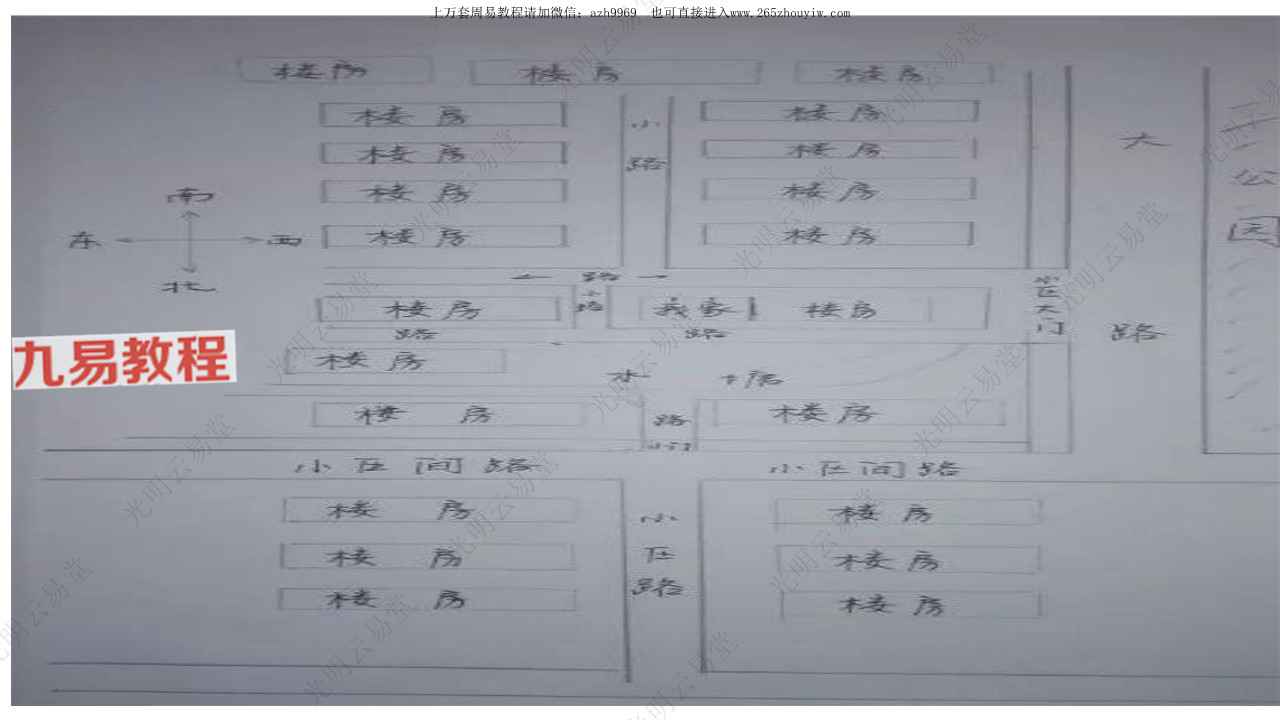 上万套周易教程请加微信：azh9969 也可直接进入www.265zhouyiw.com
楼房 楼房 楼房
楼房 小路 楼房
楼房 楼房
楼房 楼房
楼房 楼房
南
东 西
北
大路
大公园
← 路 →
楼房 小路 我家 楼房
小区大门
路 路
九易教程
楼房
水
楼房 路 楼房
小门
小区间路 小区间路
楼房 小区路 楼房
楼房 楼房
楼房 楼房
光明云易堂